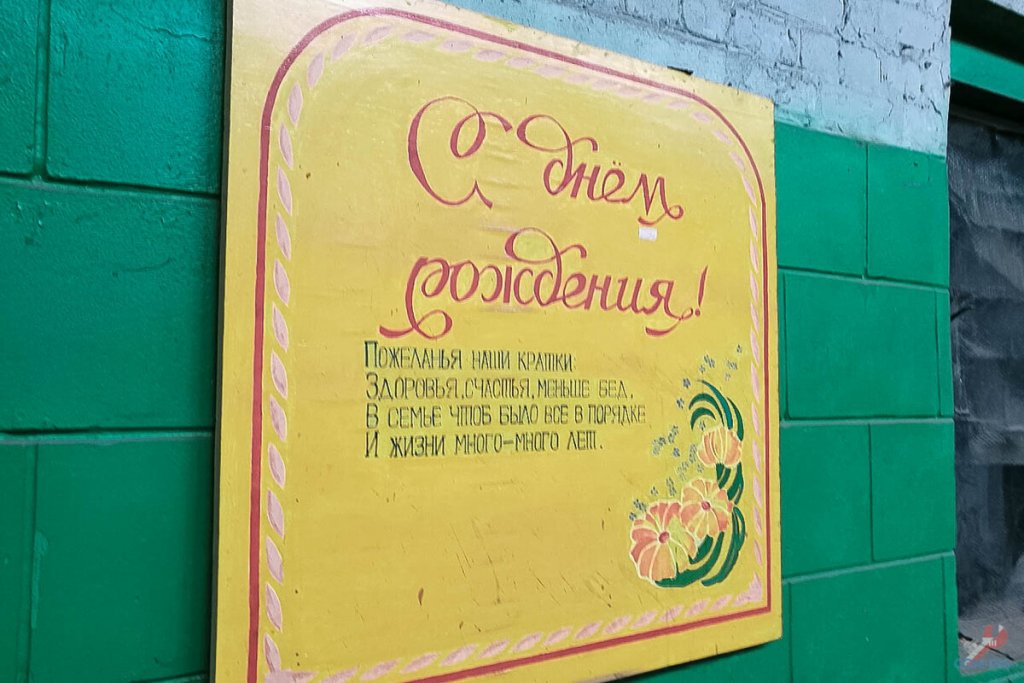 С днём
рождения!
Пожеланья наши кратки:
Здоровья, счастья, меньше бед,
В семье чтоб было все в порядке
И жизни много-много лет.